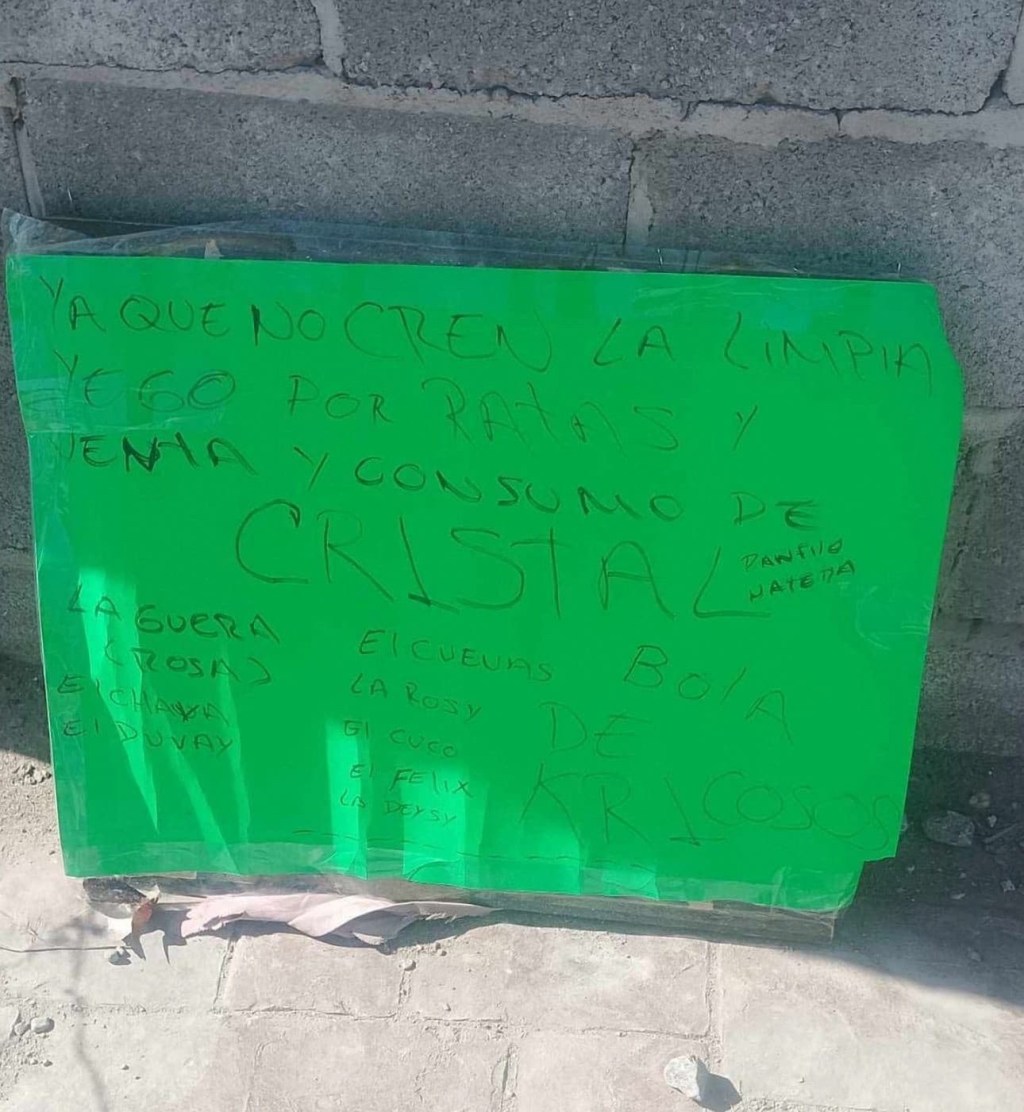 YA QUE NO CREN LA LIMPIA
YEGO POR RATAS Y
VENTA Y CONSUMO DE
CRISTAL
PANFILO
NATERA
LA GUERA
(ROSA)
El CHAVA
El DUVAY
El CUEVAS
LA ROSY
El CUCO
El FELIX
LA DEYSY
BOlA
DE
KRICOSOS